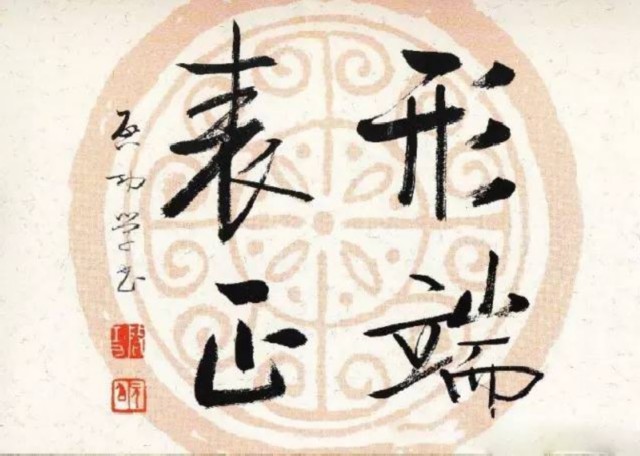 形端
表正
启功学书